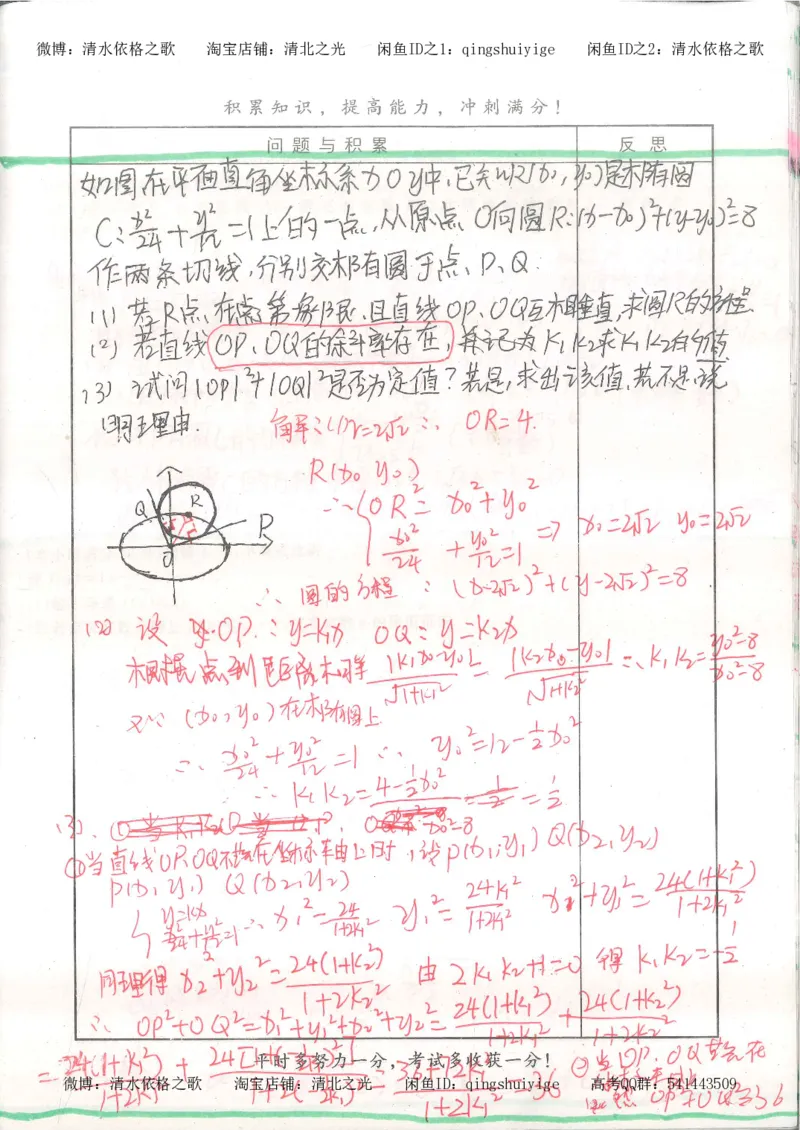 微博：清水依格之歌 淘宝店铺：清北之光 闲鱼ID之1：qingshuiyige 闲鱼ID之2：清水依格之歌
积累知识，提高能力，冲刺满分！
问题与积累 反思
如图在平面直角坐标系xOy中,已知R(x₀,y₀)是椭圆
C:x²/24+y²/12=1上的一点,从原点O向圆R:(x-x₀)²+(y-y₀)²=8
作两条切线,分别交椭圆于点P、Q.
(1)若R点在第象限,且直线OP、OQ互相垂直,求圆R的方程.
(2)若直线OP、OQ的斜率存在,并记为K₁K₂求K₁K₂的值
(3)试问|OP|²+|OQ|²是否为定值?若是,求出该值,若不是,说
明理由. 解:(1)r=2√2∴ OR=4.
R(x₀ y₀)
∴{OR²=x₀²+y₀²
x₀²/24+y₀²/12=1 ⇒ x₀=2√2 y₀=2√2
Q R P O
∴ 圆的方程:(x-2√2)²+(y-2√2)²=8
(2)设OP:y=k₁x OQ:y=k₂x
根据点到距离相等 |k₁x₀-y₀|/√1+k₁²=|k₂x₀-y₀|/√1+k₂² ∴K₁K₂=y₀²-8/x₀²-8
又∵(x₀,y₀)在椭圆上
∴ x₀²/24+y₀²/12=1 ∴ y₀²=12-½x₀²
∴ K₁K₂=4-½x₀²/x₀²-8=½
(3).
①当直线OP.OQ不在坐标轴上时,设P(x₁,y₁)Q(x₂,y₂)
P(x₁ y₁) Q(x₂,y₂)
{y=kx x²/24+y²/12=1 ∴ x₁²=24/1+2k₁² y₁²=24k₁²/1+2k₁² x₁²+y₁²=24(1+k₁²)/1+2k₁²
同理得x₂²+y₂²=24(1+k₂²)/1+2k₂² 由2k₁k₂+1=0得k₁k₂=-½
∴ OP²+OQ²=x₁²+y₁²+x₂²+y₂²=24(1+k₁²)/1+2k₁²+24(1+k₂²)/1+2k₂²
平时多努力一分，考试多收获一分！
=24(1+k₁²)/1+2k₁²+ =36 ②当OP.OQ
微博：清水依格之歌 淘宝店铺：清北之光 闲鱼ID：qingshuiyige 高考QQ群：541443509